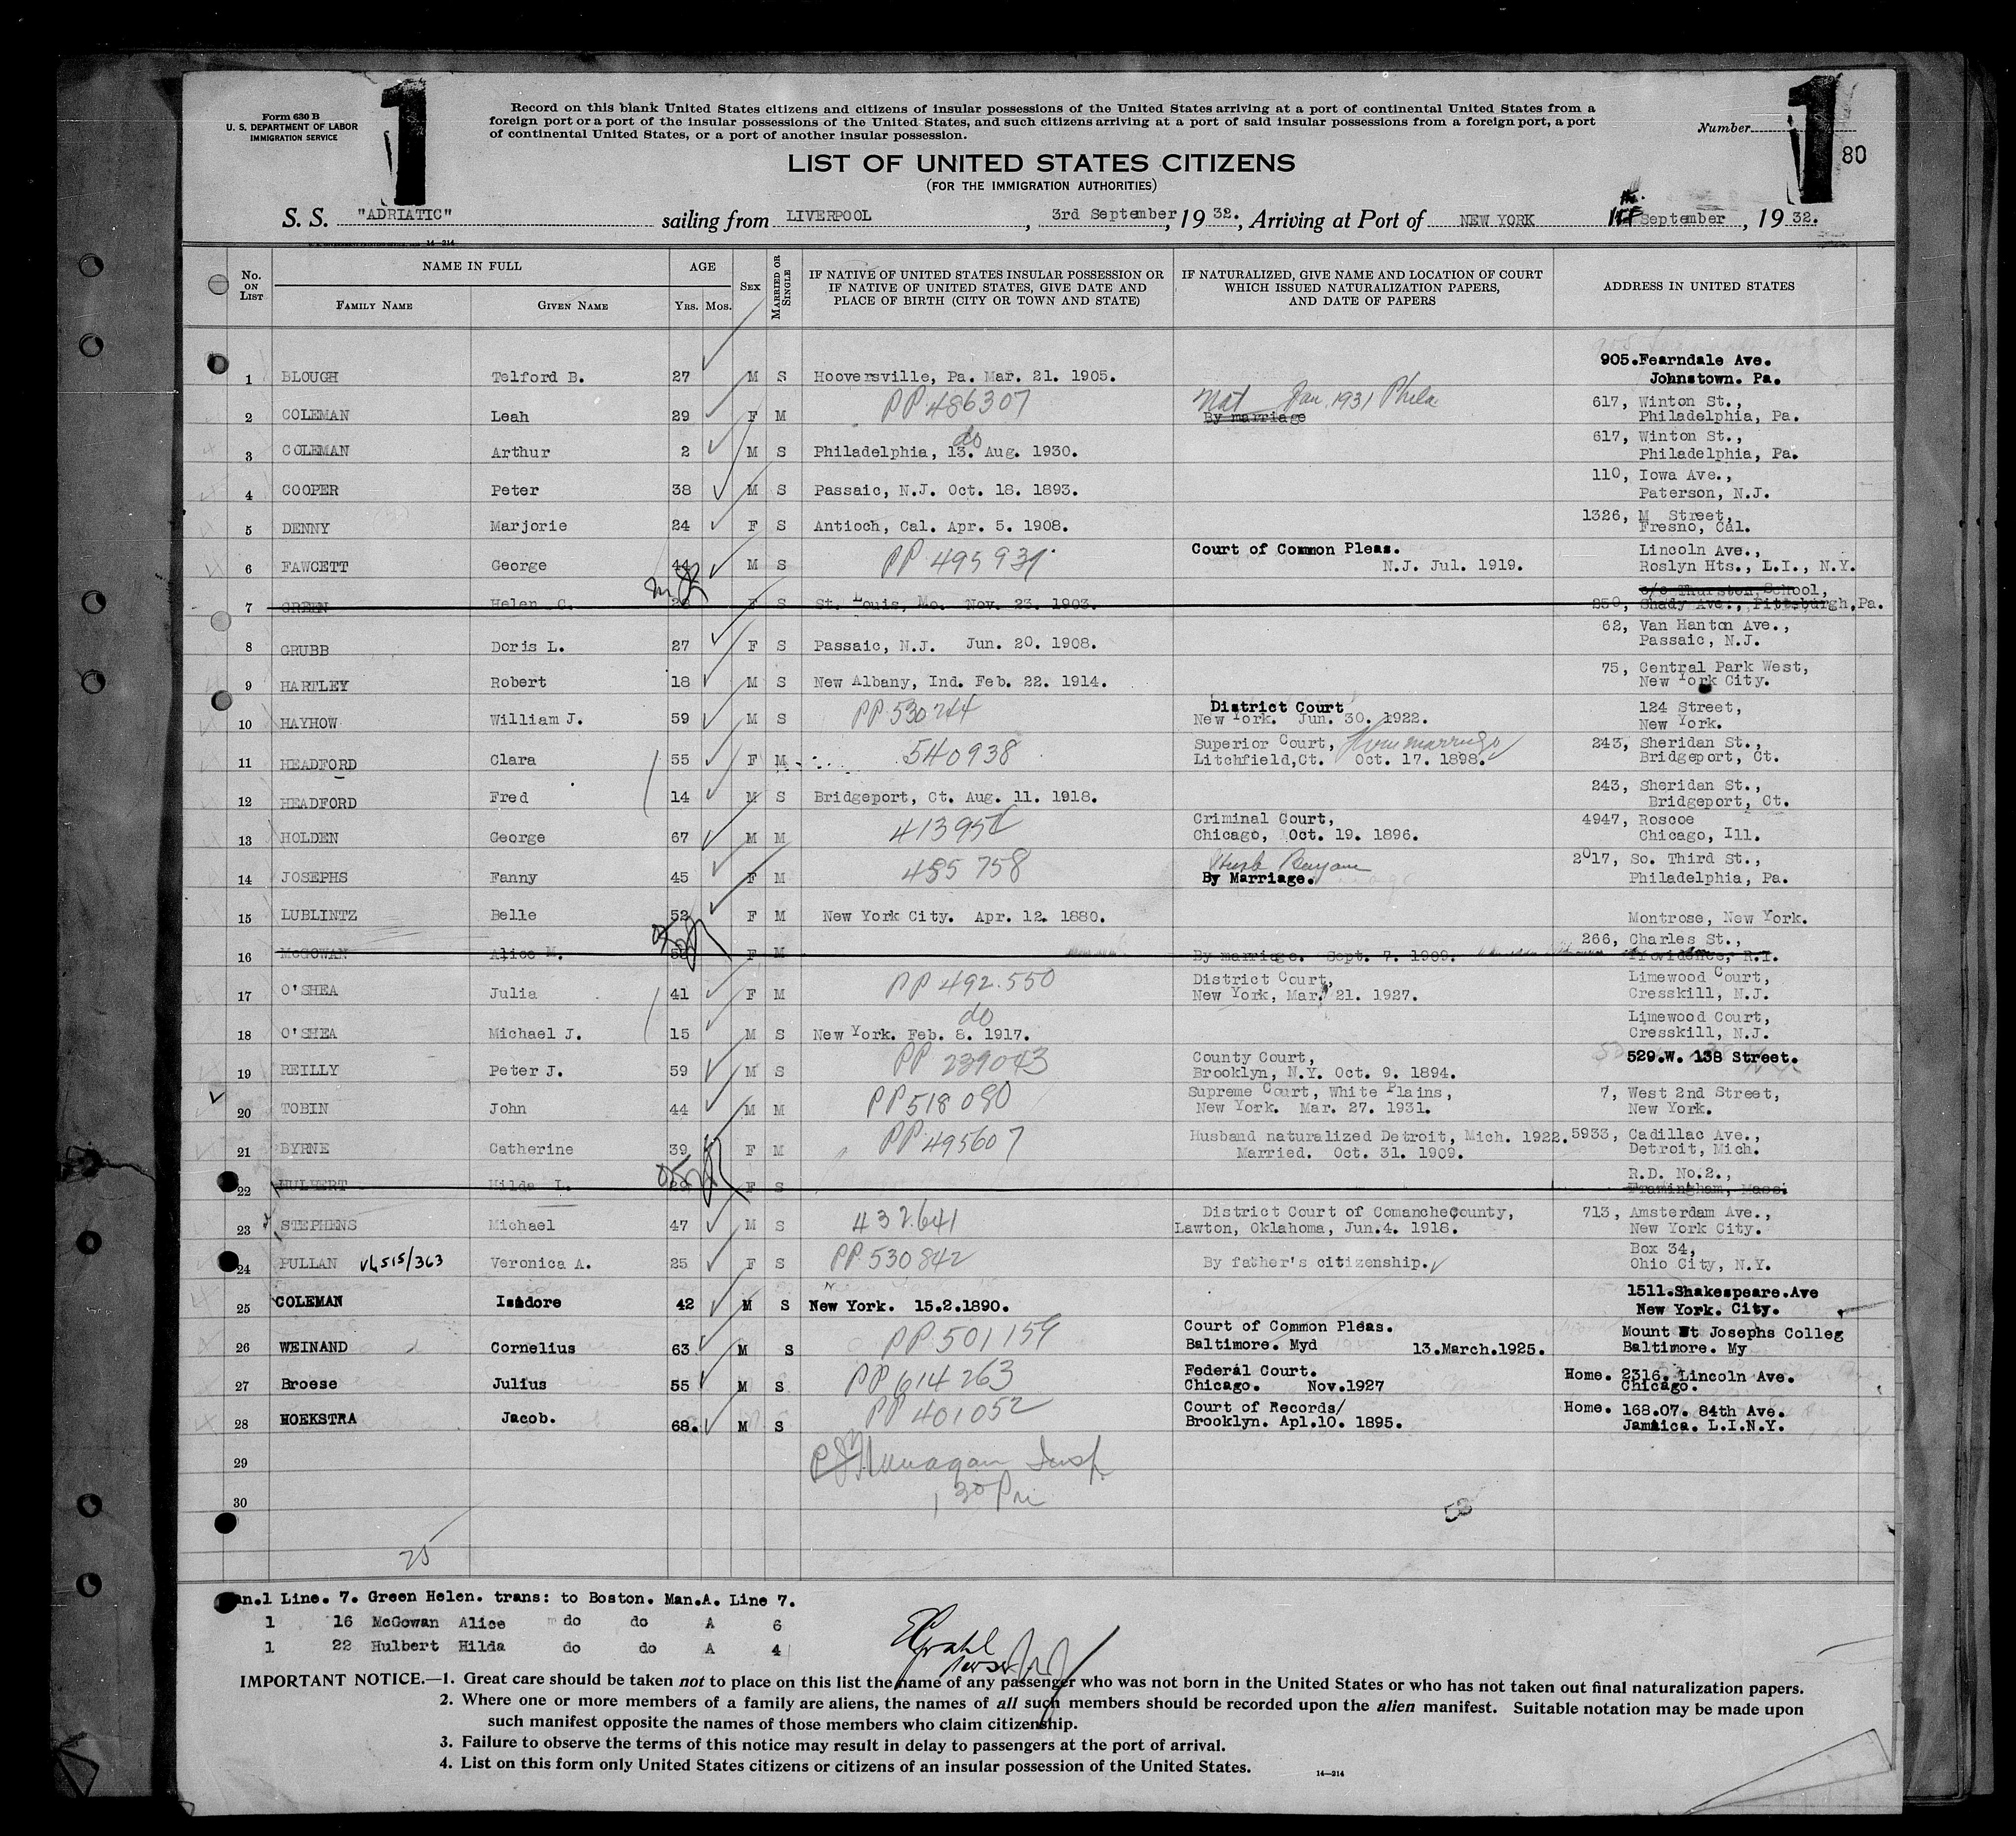 Form 630 B
U. S. DEPARTMENT OF LABOR
IMMIGRATION SERVICE
1
Record on this blank United States citizens and citizens of insular possessions of the United States arriving at a port of continental United States from a
foreign port or a port of the insular possessions of the United States, and such citizens arriving at a port of said insular possessions from a foreign port, a port
of continental United States, or a port of another insular possession.
Number
1
80
LIST OF UNITED STATES CITIZENS
(FOR THE IMMIGRATION AUTHORITIES)
S. S. "ADRIATIC" sailing from LIVERPOOL, 3rd September, 19 32., Arriving at Port of NEW YORK September, 19 32.
14-214
No. ON LIST
NAME IN FULL
FAMILY NAME
GIVEN NAME
AGE
YRS. MOS.
SEX
MARRIED OR SINGLE
IF NATIVE OF UNITED STATES INSULAR POSSESSION OR
IF NATIVE OF UNITED STATES, GIVE DATE AND
PLACE OF BIRTH (CITY OR TOWN AND STATE)
IF NATURALIZED, GIVE NAME AND LOCATION OF COURT
WHICH ISSUED NATURALIZATION PAPERS,
AND DATE OF PAPERS
ADDRESS IN UNITED STATES
905.Fearndale Ave.
1 BLOUGH Telford B. 27 M S Hooversville, Pa. Mar. 21. 1905. Johnstown. Pa.
PP 486307 Nat Jan. 1931 Phila 617, Winton St.,
2 COLEMAN Leah 29 F M By marriage Philadelphia, Pa.
do 617, Winton St.,
3 COLEMAN Arthur 2 M S Philadelphia, 13. Aug. 1930. Philadelphia, Pa.
110, Iowa Ave.,
4 COOPER Peter 38 M S Passaic, N.J. Oct. 18. 1893. Paterson, N.J.
1326, M Street,
5 DENNY Marjorie 24 F S Antioch, Cal. Apr. 5. 1908. Fresno, Cal.
Court of Common Pleas. Lincoln Ave.,
6 FAWCETT George 44 M S PP 495931 N.J. Jul. 1919. Roslyn Hts., L.I., N.Y.
c/o Thurston School,
7 GREEN Helen C. 28 F S St. Louis, Mo. Nov. 23. 1903. 250, Shady Ave., Pittsburgh, Pa.
62, Van Hanton Ave.,
8 GRUBB Doris L. 27 F S Passaic, N.J. Jun. 20. 1908. Passaic, N.J.
75, Central Park West,
9 HARTLEY Robert 18 M S New Albany, Ind. Feb. 22. 1914. New York City.
District Court 124 Street,
10 HAYHOW William J. 59 M S PP 530244 New York. Jun. 30. 1922. New York.
Superior Court, 243, Sheridan St.,
11 HEADFORD Clara 55 F M 540938 Litchfield,Ct. Oct. 17. 1898. Bridgeport, Ct.
243, Sheridan St.,
12 HEADFORD Fred 14 M S Bridgeport, Ct. Aug. 11. 1918. Bridgeport, Ct.
Criminal Court, 4947, Roscoe
13 HOLDEN George 67 M M Chicago, Oct. 19. 1896. Chicago, Ill.
2017, So. Third St.,
14 JOSEPHS Fanny 45 F M 485758 By Marriage. Philadelphia, Pa.
15 LUBLINTZ Belle 52 F M New York City. Apr. 12. 1880. Montrose, New York.
266, Charles St.,
16 McGOWAN Alice M. F M By marriage. Sept. 7. 1909. Providence, R.I.
PP 492.550 District Court, Limewood Court,
17 O'SHEA Julia 41 F M New York, Mar. 21. 1927. Cresskill, N.J.
do Limewood Court,
18 O'SHEA Michael J. 15 M S New York. Feb. 8. 1917. Cresskill, N.J.
County Court, 529.W. 138 Street.
19 REILLY Peter J. 59 M S PP 239043 Brooklyn, N.Y. Oct. 9. 1894.
Supreme Court, White Plains, 7, West 2nd Street,
20 TOBIN John 44 M M PP 518080 New York. Mar. 27. 1931. New York.
Husband naturalized Detroit, Mich. 1922. 5933, Cadillac Ave.,
21 BYRNE Catherine 39 F M PP 495607 Married. Oct. 31. 1909. Detroit, Mich.
R.D. No.2.,
22 HULBERT Hilda L. F S Framingham, Mass.
District Court of Comanche County, 713, Amsterdam Ave.,
23 STEPHENS Michael 47 M S 432641 Lawton, Oklahoma, Jun.4. 1918. New York City.
Box 34,
24 PULLAN 515/363 Veronica A. 25 F S PP 530842 By father's citizenship. Ohio City, N.Y.
1511.Shakespeare.Ave
25 COLEMAN Isidore 42 M S New York. 15.2.1890. New York. City.
Court of Common Pleas. Mount St Josephs Colleg
26 WEINAND Cornelius 63 M S PP 501159 Baltimore. Myd 13.March.1925. Baltimore. My
Federal Court. Home. 2316. Lincoln Ave.
27 Broese Julius 55 M S PP 614263 Chicago. Nov.1927 Chicago.
Court of Records/ Home. 168.07. 84th Ave.
28 HOEKSTRA Jacob. 68. M S PP 401052 Brooklyn. Apl.10. 1895. Jamaica. L.I.N.Y.
29
30
25
Man.1 Line. 7. Green Helen. trans: to Boston. Man.A. Line 7.
1 16 McGowan Alice do do A 6
1 22 Hulbert Hilda do do A 4
IMPORTANT NOTICE.—1. Great care should be taken not to place on this list the name of any passenger who was not born in the United States or who has not taken out final naturalization papers.
2. Where one or more members of a family are aliens, the names of all such members should be recorded upon the alien manifest. Suitable notation may be made upon
such manifest opposite the names of those members who claim citizenship.
3. Failure to observe the terms of this notice may result in delay to passengers at the port of arrival.
4. List on this form only United States citizens or citizens of an insular possession of the United States.
14—214